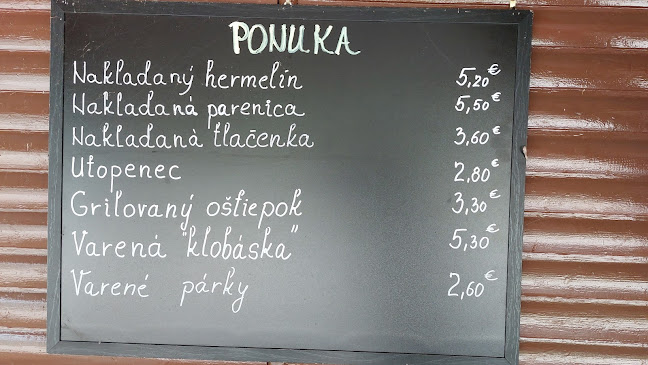 PONUKA
Nakladaný hermelín 5,20€
Nakladaná parenica 5,50€
Nakladaná tlačenka 3,60€
Utopenec 2,80€
Grilovaný oštiepok 3,30€
Varená "klobáska" 5,30€
Varené párky 2,60€